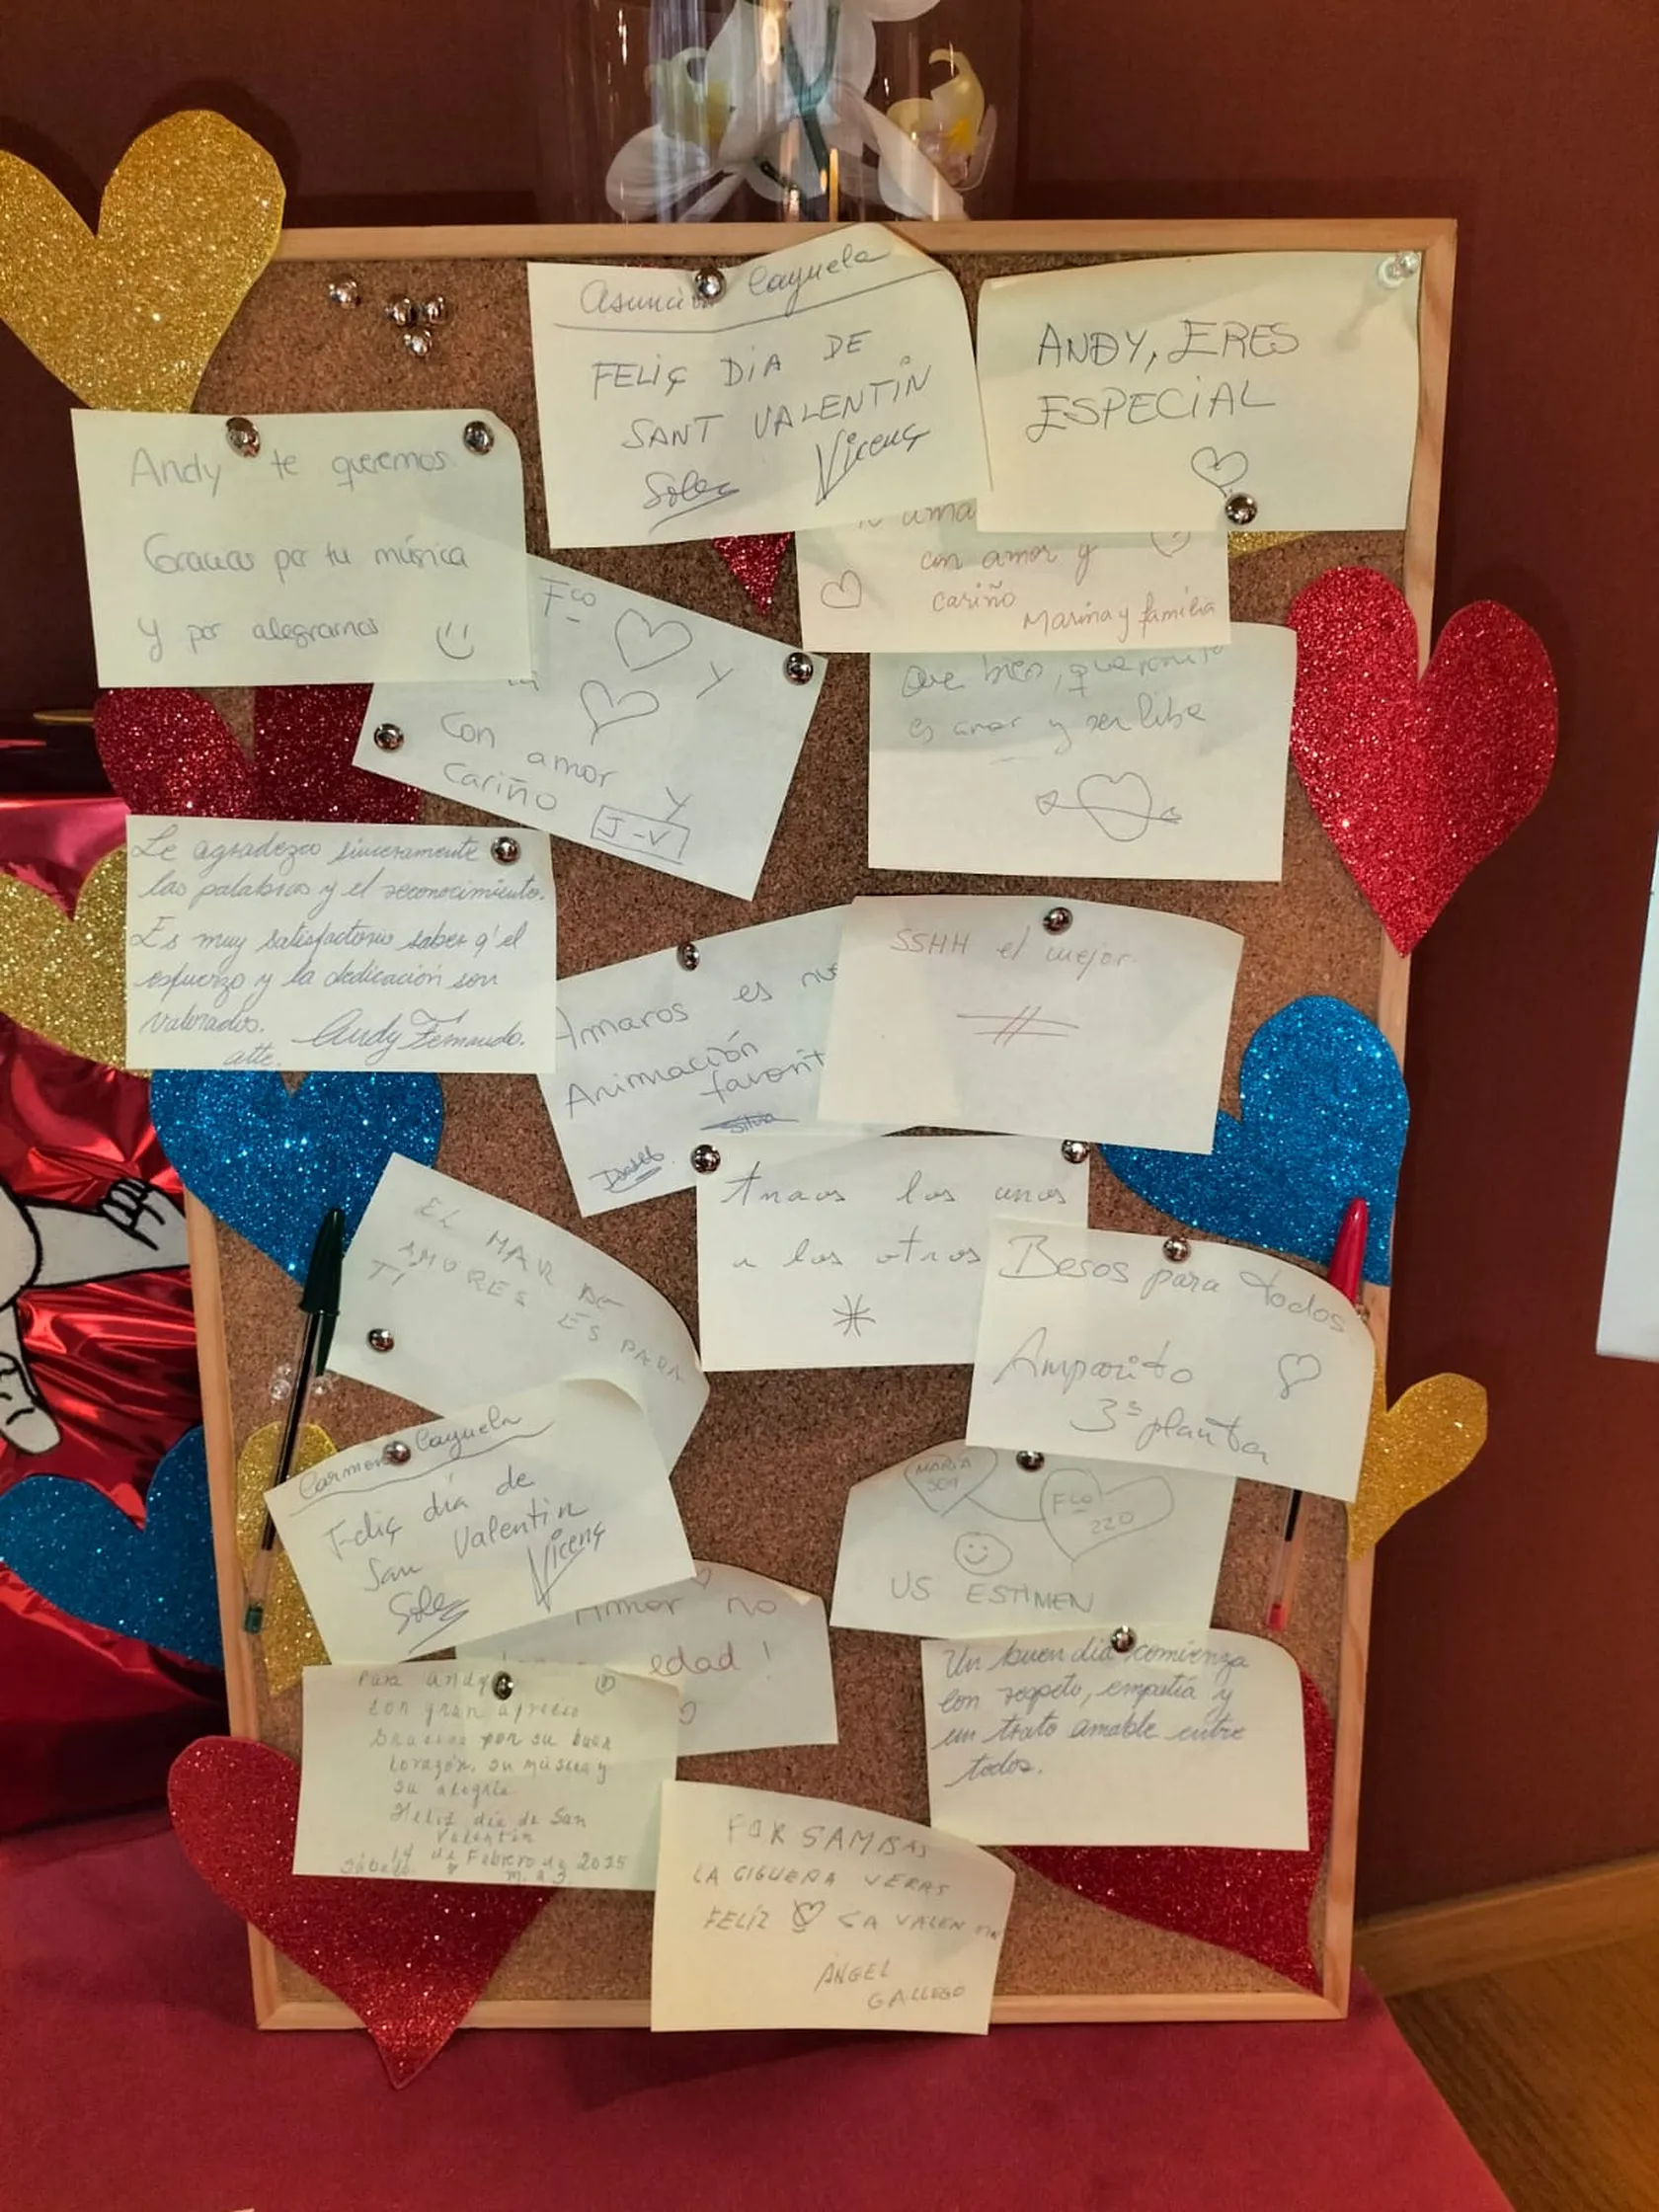 Asunción Cayuela
FELIÇ DIA DE
SANT VALENTIN
Soles Vicenç
ANDY, ERES
ESPECIAL
Andy te queremos
Gracias por tu música
y por alegrarnos
con amor y
cariño
Marina y familia
Fco
y
Con amor y
Cariño
J-V
Que bien,
es amar y ser libre
Le agradezco sinceramente
las palabras y el reconocimiento.
Es muy satisfactorio saber q' el
esfuerzo y la dedicación son
valorados.
atte. Andy Fernando.
SSHH el mejor
Amaros es
Animación
Silvia
EL MAR DE
AMORES ES PARA
TÍ
Amaos los unos
a los otros
Besos para todos
Amparito
3ª planta
Carmen Cayuela
Feliç día de
San Valentin
Soles Vicenç
MARIA
504
Fco
220
US ESTIMEN
Amor no
edad!
Para andy
con gran aprecio
Gracias por su buen
corazón, su música y
su alegría.
Feliz día de San
Valentín
Sábado 14 de Febrero de 2025
M. a J.
Un buen día comienza
con respeto, empatía y
un trato amable entre
todos.
POR SAMBAS
LA CIGUEÑA VERAS
FELIZ SA VALENTIN
ÁNGEL
GALLEGO